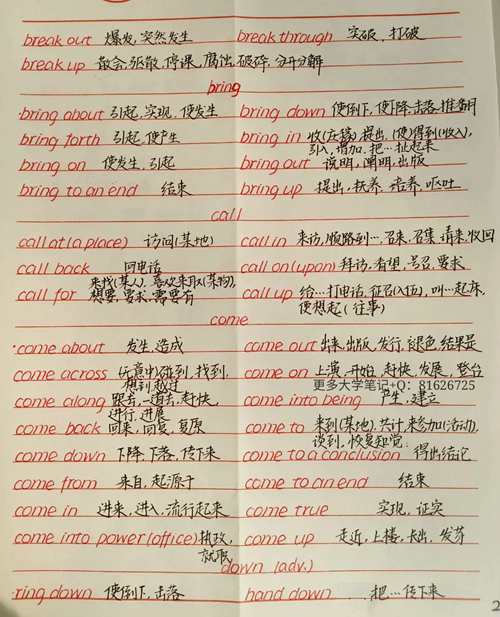 break out 爆发,突然发生 break through 突破,打破
break up 散会,驱散,停课,腐蚀,破碎,分开分解
bring
bring about 引起,实现,使发生 bring down 使倒下,使下降,击落
bring forth 引起,使产生 bring in 收(庄稼)提出,(使)得到(收入),
引入,增加,把…扯起来
bring on 使发生,引起 bring out 说明,阐明,出版
bring to an end 结束 bring up 提出,抚养,培养,呕吐
call
call at (a place) 访问(某地) call in 来访,顺路到…,召来,召集,请来,收回
call back 回电话 call on (upon) 拜访,看望,号召,要求
来找(某人),喜欢来取(某物),
call for 想要,要求,需要有 call up 给…打电话,征召(入伍),叫…起床,
使想起(往事)
come
come about 发生,造成 come out 出来,出版,发行,褪色,结果是
come across (无意中)碰到,找到, come on 上演,开始,赶快,发展,登台
想到,越过
更多大学笔记+Q：81626725
come along 跟去,一道去,赶快, come into being 产生,建立
进行,进展
come back 回来,回复,复原 come to 来到(某地),共计,来参加(活动),
谈到,恢复知觉
come down 下降,下落,传下来 come to a conclusion 得出结论
come from 来自,起源于 come to an end 结束
come in 进来,进入,流行起来 come true 实现,证实
come into power (office) 执政, come up 走近,上楼,长出,发芽
就职
down (adv.)
ring down 使倒下,击落 hand down 把…传下来
2